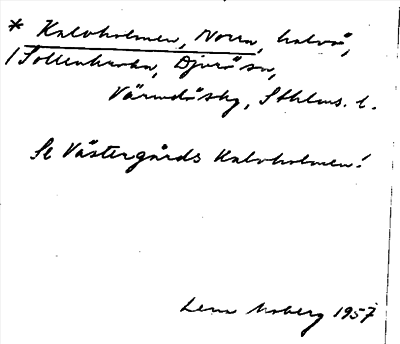 * Kalvholmen, Norra, halvö,
/ Sollenkroka, Djurö sn,
Värmdö skg, Sthlms. l.
Se Västergårds Kalvholmen!
Lena Moberg 1957